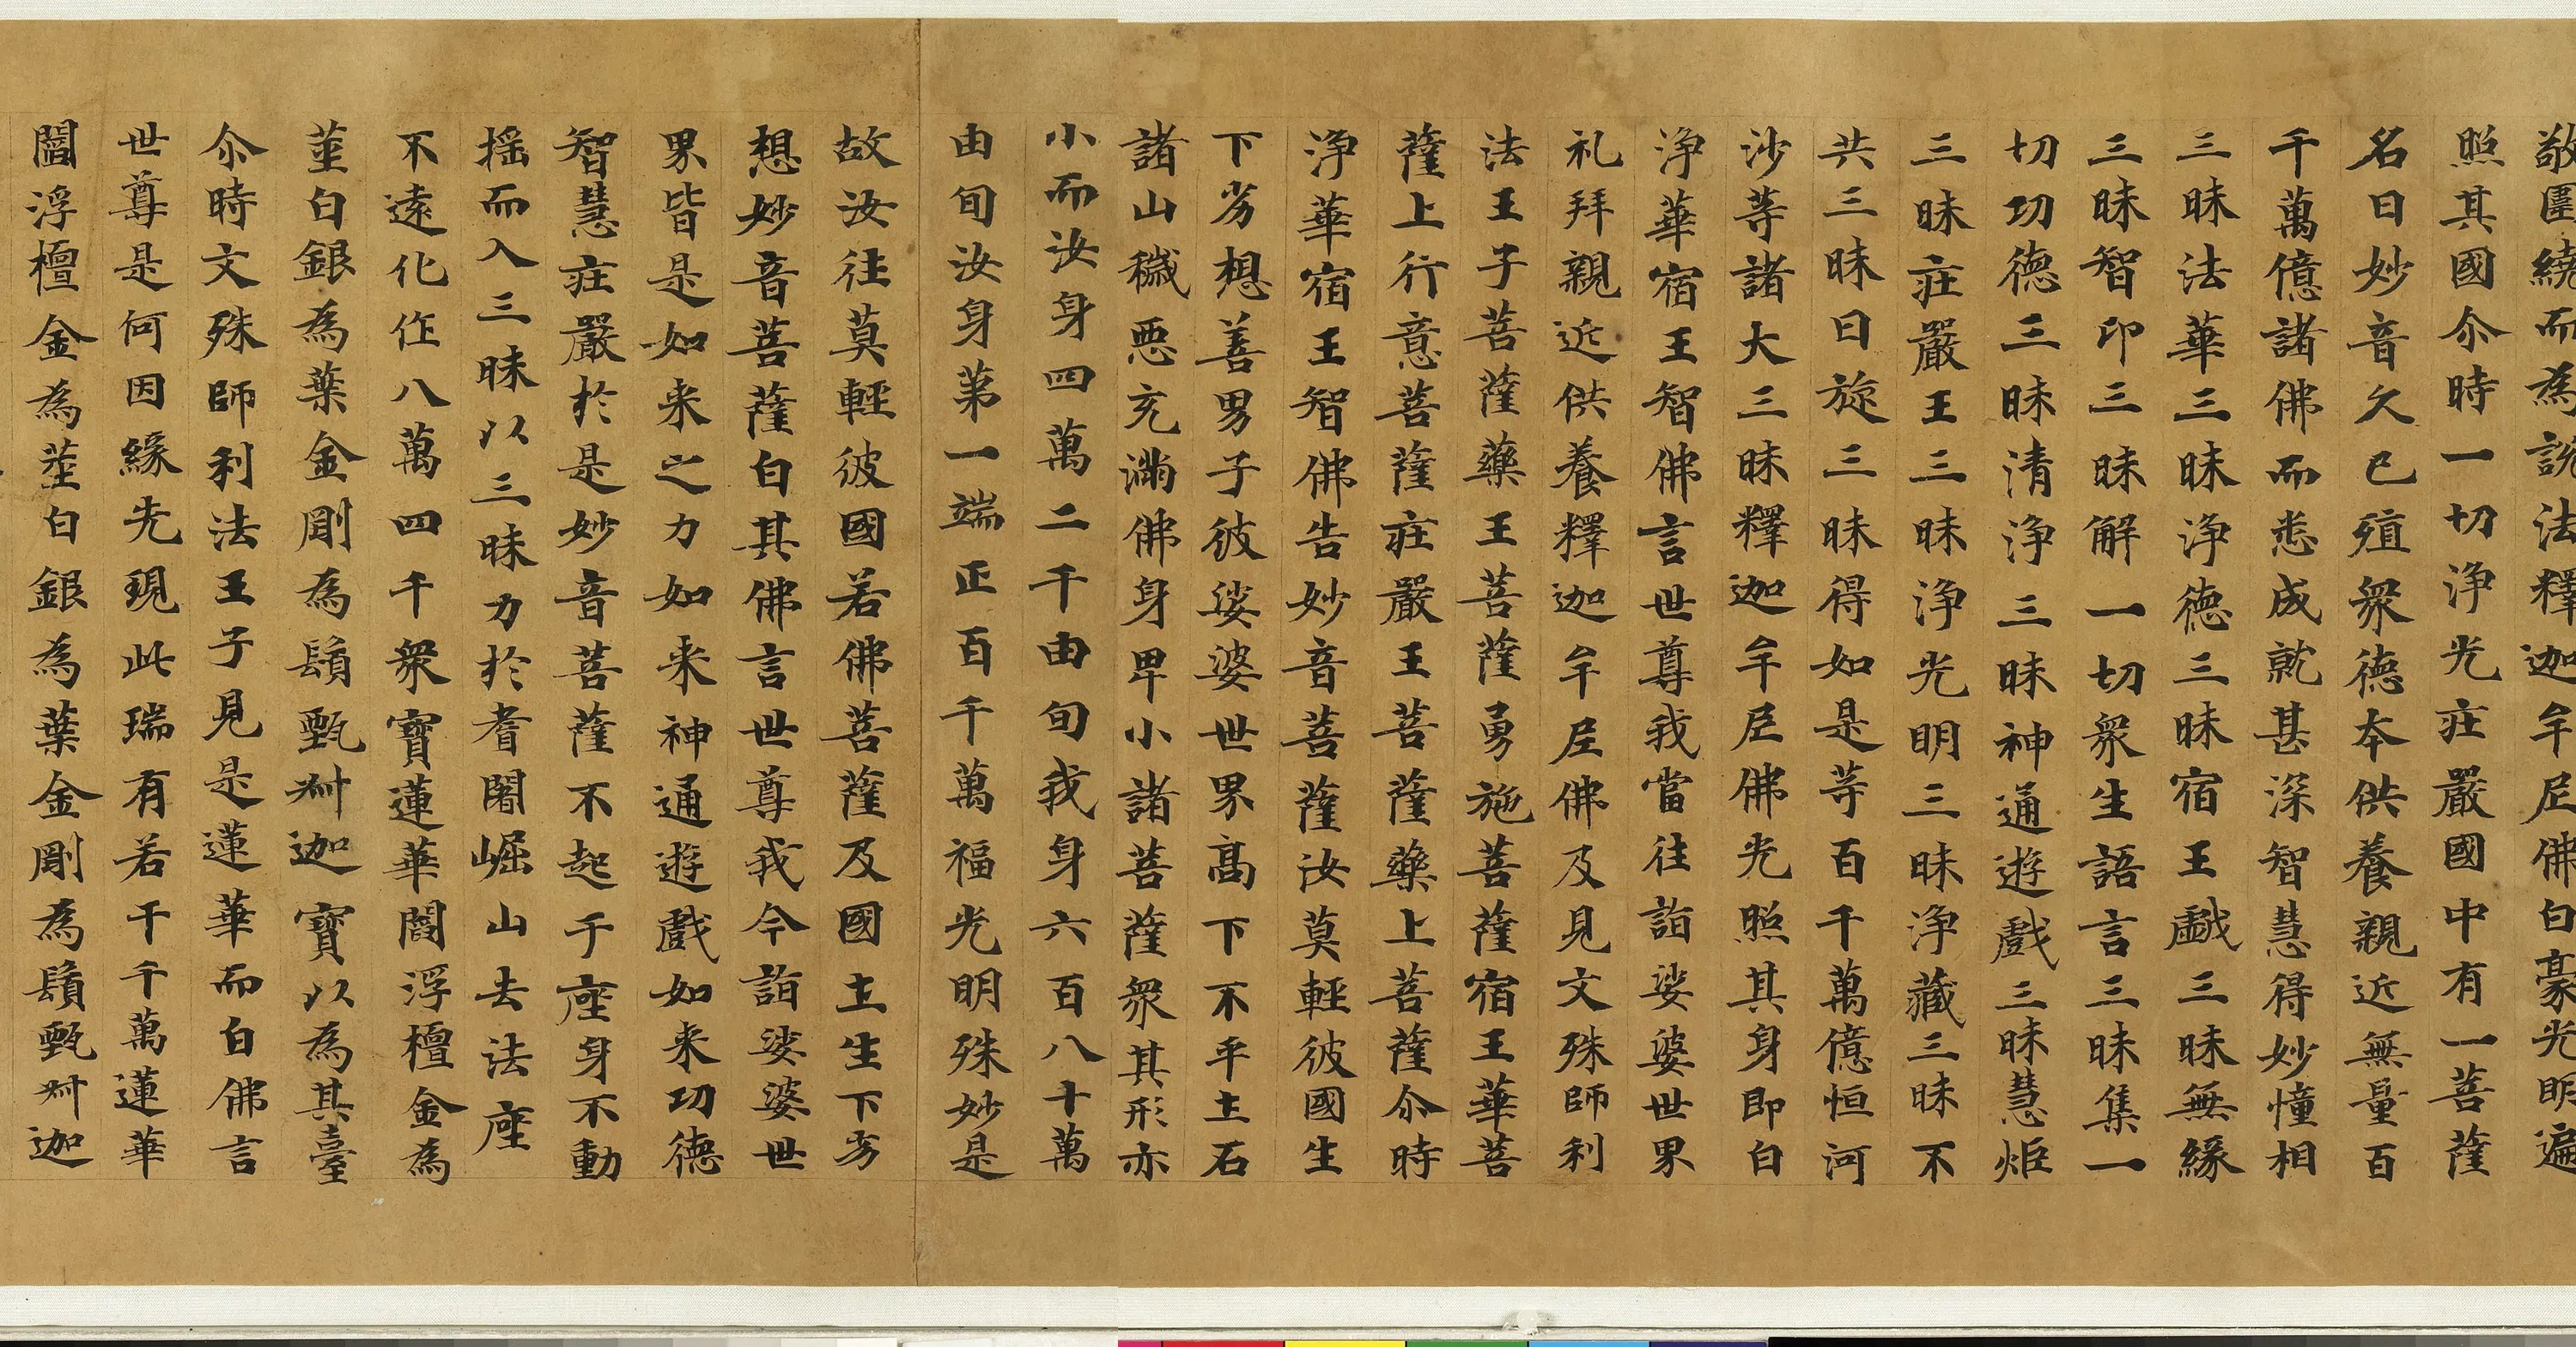 敬圍繞而為説法釋迦牟尼佛白豪光明遍
照其國尒時一切淨光荘嚴國中有一菩薩
名曰妙音久已殖衆德本供養親近無量百
千萬億諸佛而悉成就甚深智慧得妙憧相
三昧法華三昧淨德三昧宿王戲三昧無緣
三昧智印三昧解一切衆生語言三昧集一
切功德三昧清淨三昧神通遊戲三昧慧炬
三昧荘嚴王三昧淨光明三昧淨藏三昧不
共三昧日旋三昧得如是等百千萬億恒河
沙等諸大三昧釋迦牟尼佛光照其身即白
淨華宿王智佛言世尊我當往詣娑婆世界
礼拜親近供養釋迦牟尼佛及見文殊師利
法王子菩薩藥王菩薩勇施菩薩宿王華菩
薩上行意菩薩荘嚴王菩薩藥上菩薩尒時
淨華宿王智佛告妙音菩薩汝莫輕彼國生
下劣想善男子彼娑婆世界高下不平土石
諸山穢惡充滿佛身卑小諸菩薩衆其形亦
小而汝身四萬二千由旬我身六百八十萬
由旬汝身第一端正百千萬福光明殊妙是
故汝往莫輕彼國若佛菩薩及國土生下劣
想妙音菩薩白其佛言世尊我今詣娑婆世
界皆是如来之力如来神通遊戲如来功德
智慧荘嚴於是妙音菩薩不起于座身不動
揺而入三昧以三昧力於耆闍崛山去法座
不遠化作八萬四千衆寶蓮華閻浮檀金為
莖白銀為葉金剛為鬚甄叔迦寶以為其臺
尒時文殊師利法王子見是蓮華而白佛言
世尊是何因緣先現此瑞有若干千萬蓮華
閻浮檀金為莖白銀為葉金剛為鬚甄叔迦